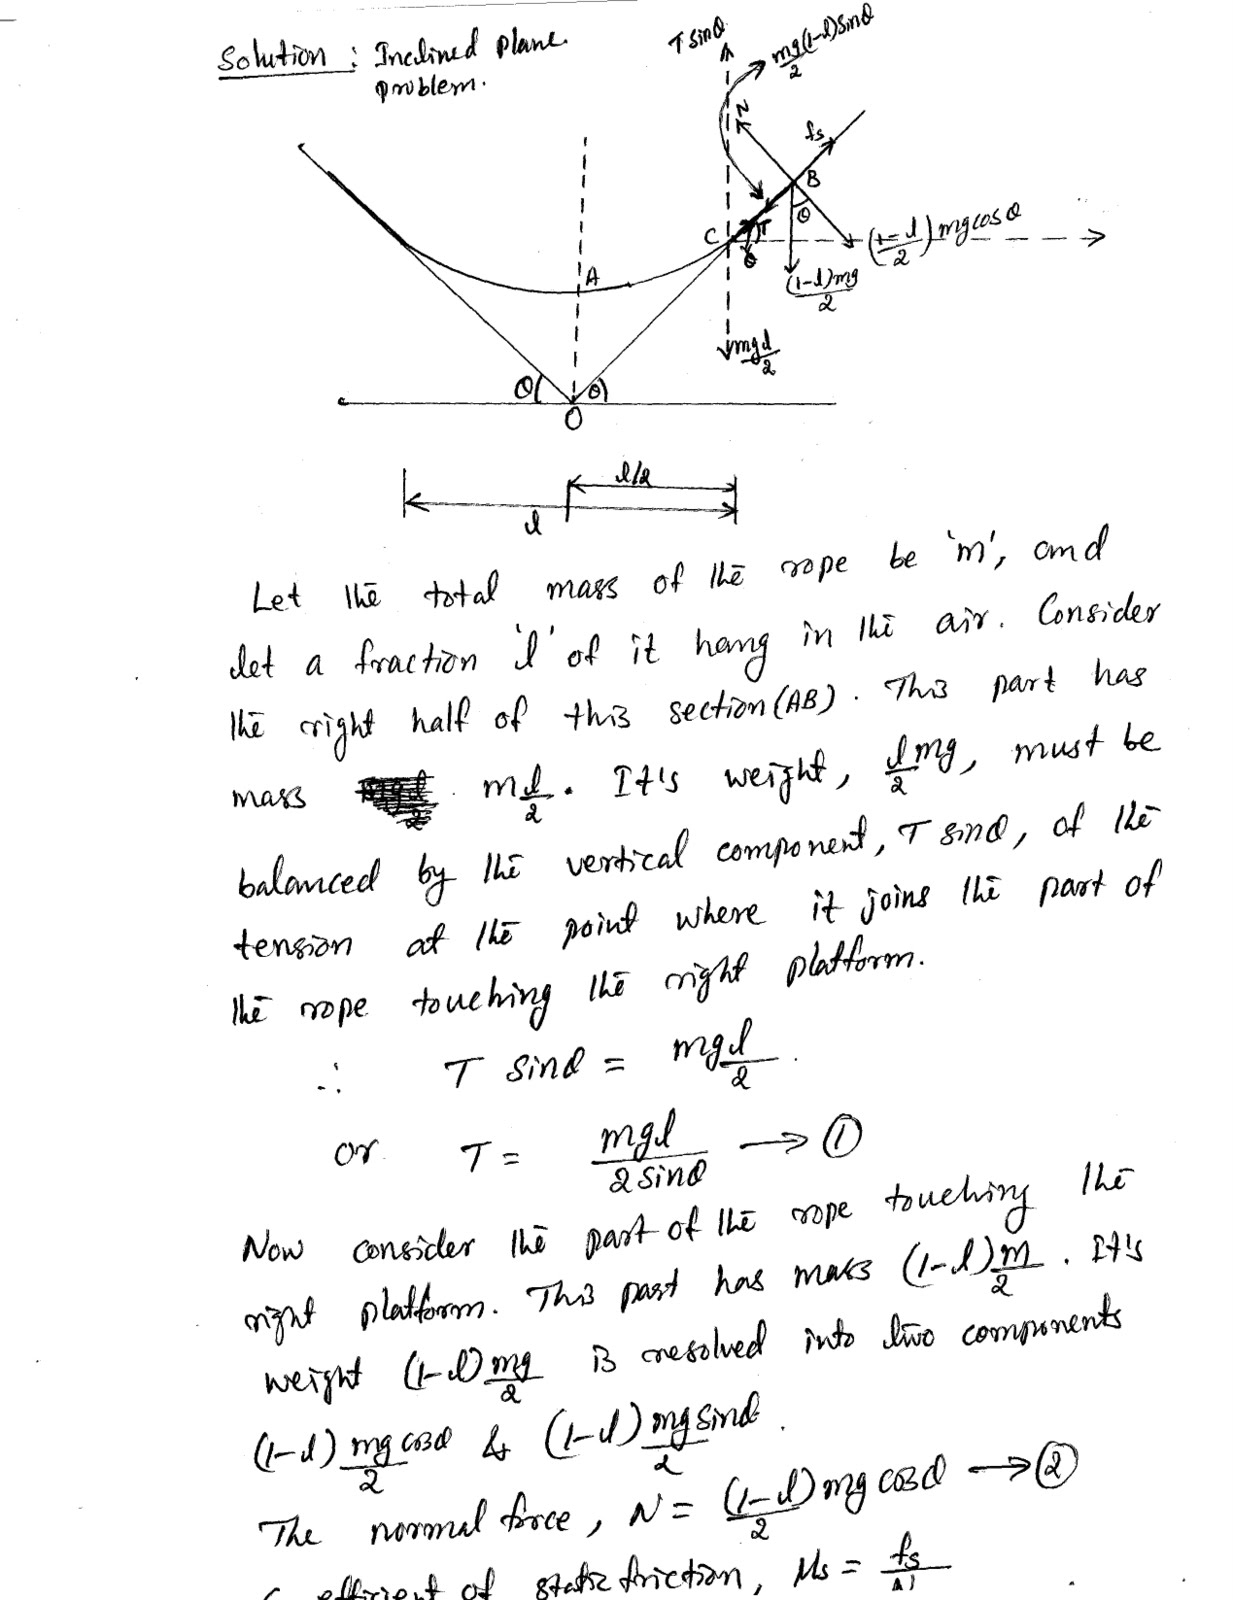 Solution : Inclined plane
problem.
T sinθ
mg(1-l)sinθ
2
N
fs
B
θ
C
T
θ
(1-l) mg cosθ
2
(1-l)mg
2
A
mgl
2
θ
θ
O
l/2
l
Let the total mass of the rope be 'm', and
let a fraction 'l' of it hang in the air. Consider
the right half of this section (AB). This part has
mass m l/2. It's weight, l/2 mg, must be
balanced by the vertical component, T sinθ, of the
tension at the point where it joins the part of
the rope touching the right platform.
∴ T sinθ = mgl/2.
or T = mgl/2 sinθ → ①
Now consider the part of the rope touching the
right platform. This part has mass (1-l) m/2. It's
weight (1-l) mg/2 is resolved into two components
(1-l) mg cosθ/2 & (1-l) mg sinθ/2.
The normal force, N = (1-l)/2 mg cosθ → ②
efficient of static friction, μs = fs/N